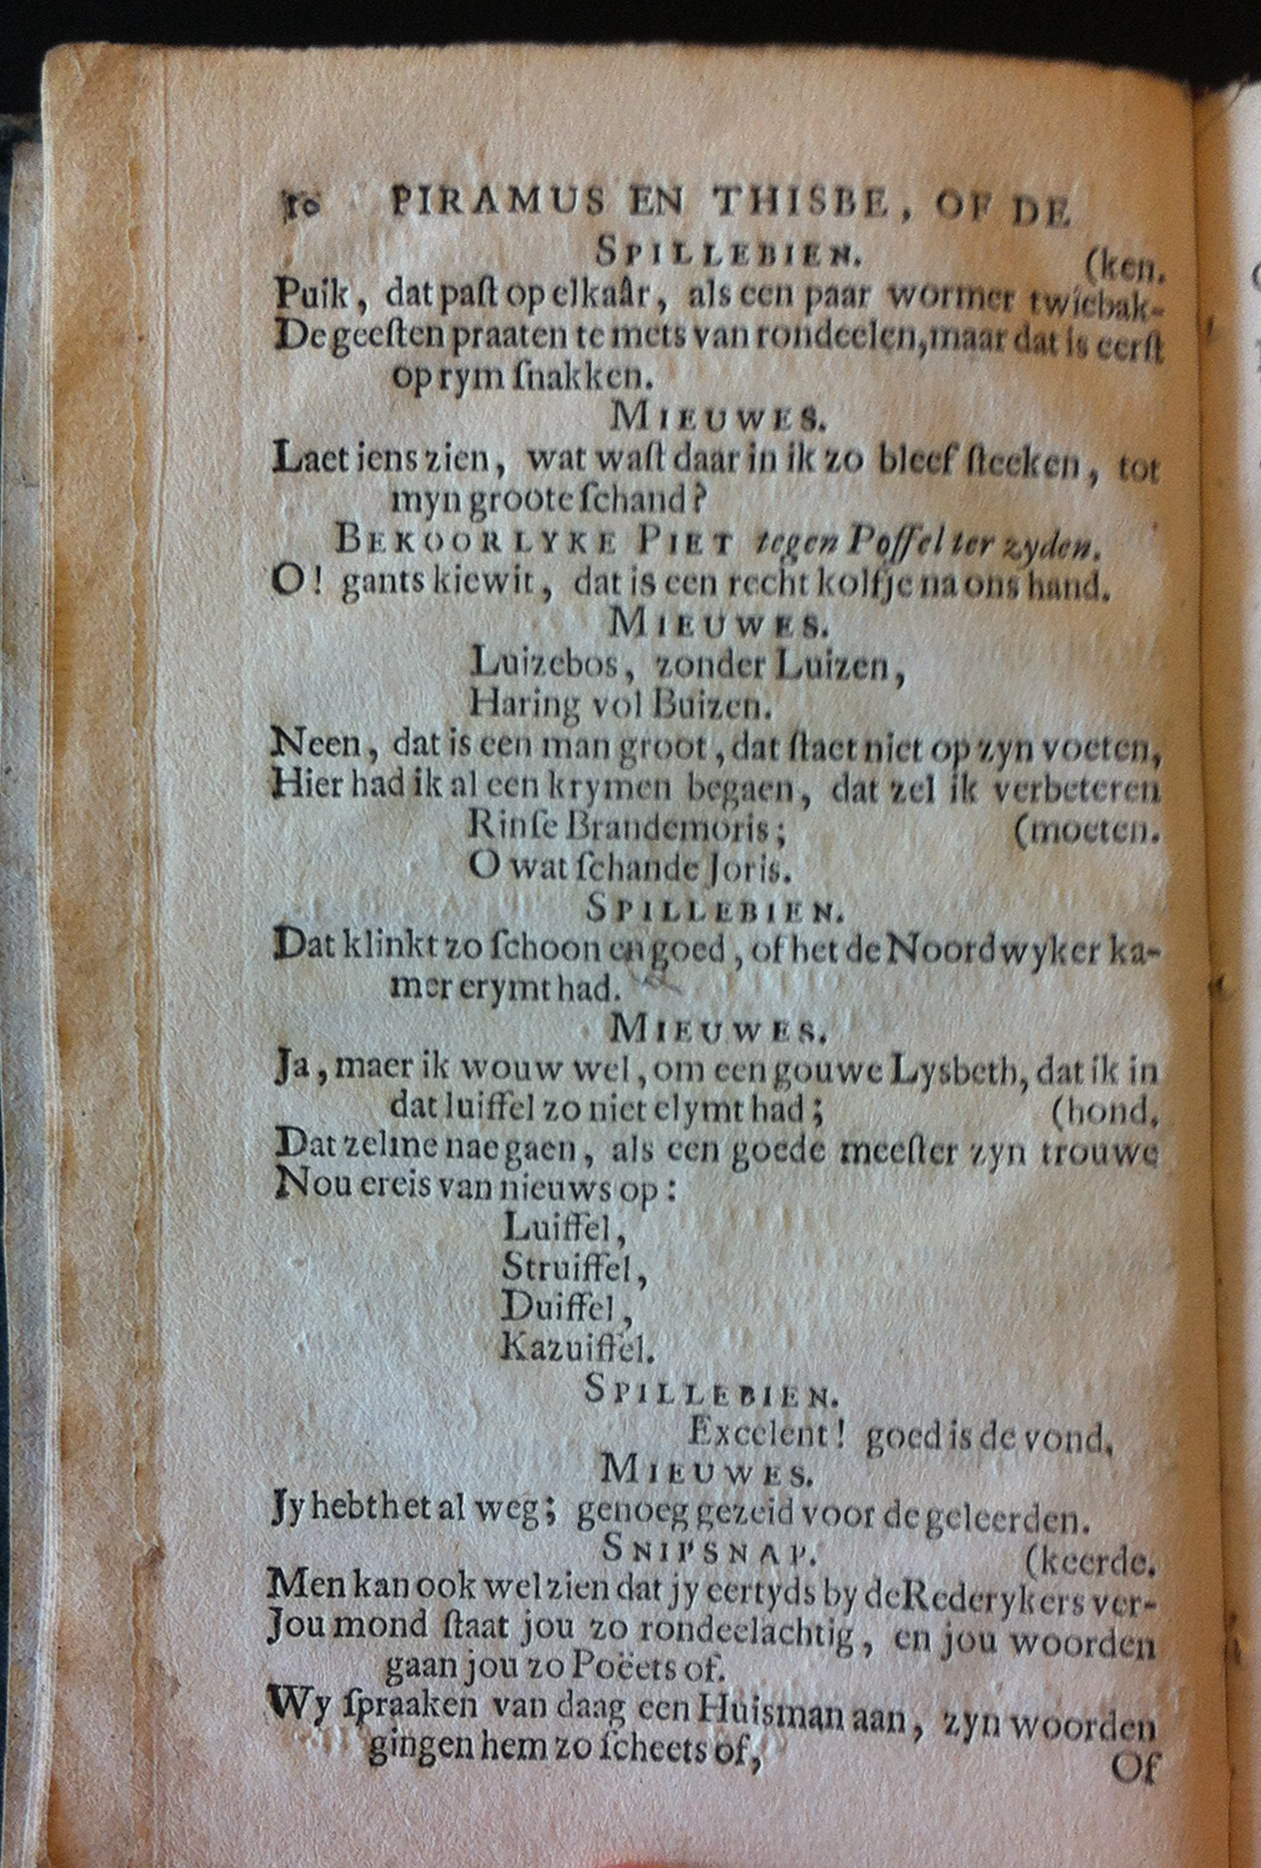 10 PIRAMUS EN THISBE, OF DE
SPILLEBIEN. (ken.
Puik, dat paſt op elkaâr, als een paar wormer twiebak-
De geeſten praaten te mets van rondeelen, maar dat is eerſt
op rym ſnakken.
MIEUWES.
Laet iens zien, wat waſt daar in ik zo bleef ſteeken, tot
myn groote ſchand?
BEKOORLYKE PIET tegen Poſſel ter zyden.
O! gants kiewit, dat is een recht kolfje na ons hand.
MIEUWES.
Luizebos, zonder Luizen,
Haring vol Buizen.
Neen, dat is een man groot, dat ſtaet niet op zyn voeten,
Hier had ik al een krymen begaen, dat zel ik verbeteren
Rinſe Brandemoris; (moeten.
O wat ſchande Joris.
SPILLEBIEN.
Dat klinkt zo ſchoon en goed, of het de Noordwyker ka-
mer erymt had.
MIEUWES.
Ja, maer ik wouw wel, om een gouwe Lysbeth, dat ik in
dat luiffel zo niet elymt had; (hond.
Dat zelme nae gaen, als een goede meeſter zyn trouwe
Nou ereis van nieuws op:
Luiffel,
Struiffel,
Duiffel,
Kazuiffel.
SPILLEBIEN.
Excelent! goed is de vond.
MIEUWES.
Jy hebt het al weg; genoeg gezeid voor de geleerden.
SNIPSNAP. (keerde.
Men kan ook wel zien dat jy eertyds by de Rederykers ver-
Jou mond ſtaat jou zo rondeelachtig, en jou woorden
gaan jou zo Poëets of.
Wy ſpraaken van daag een Huisman aan, zyn woorden
gingen hem zo ſcheets of,
Of